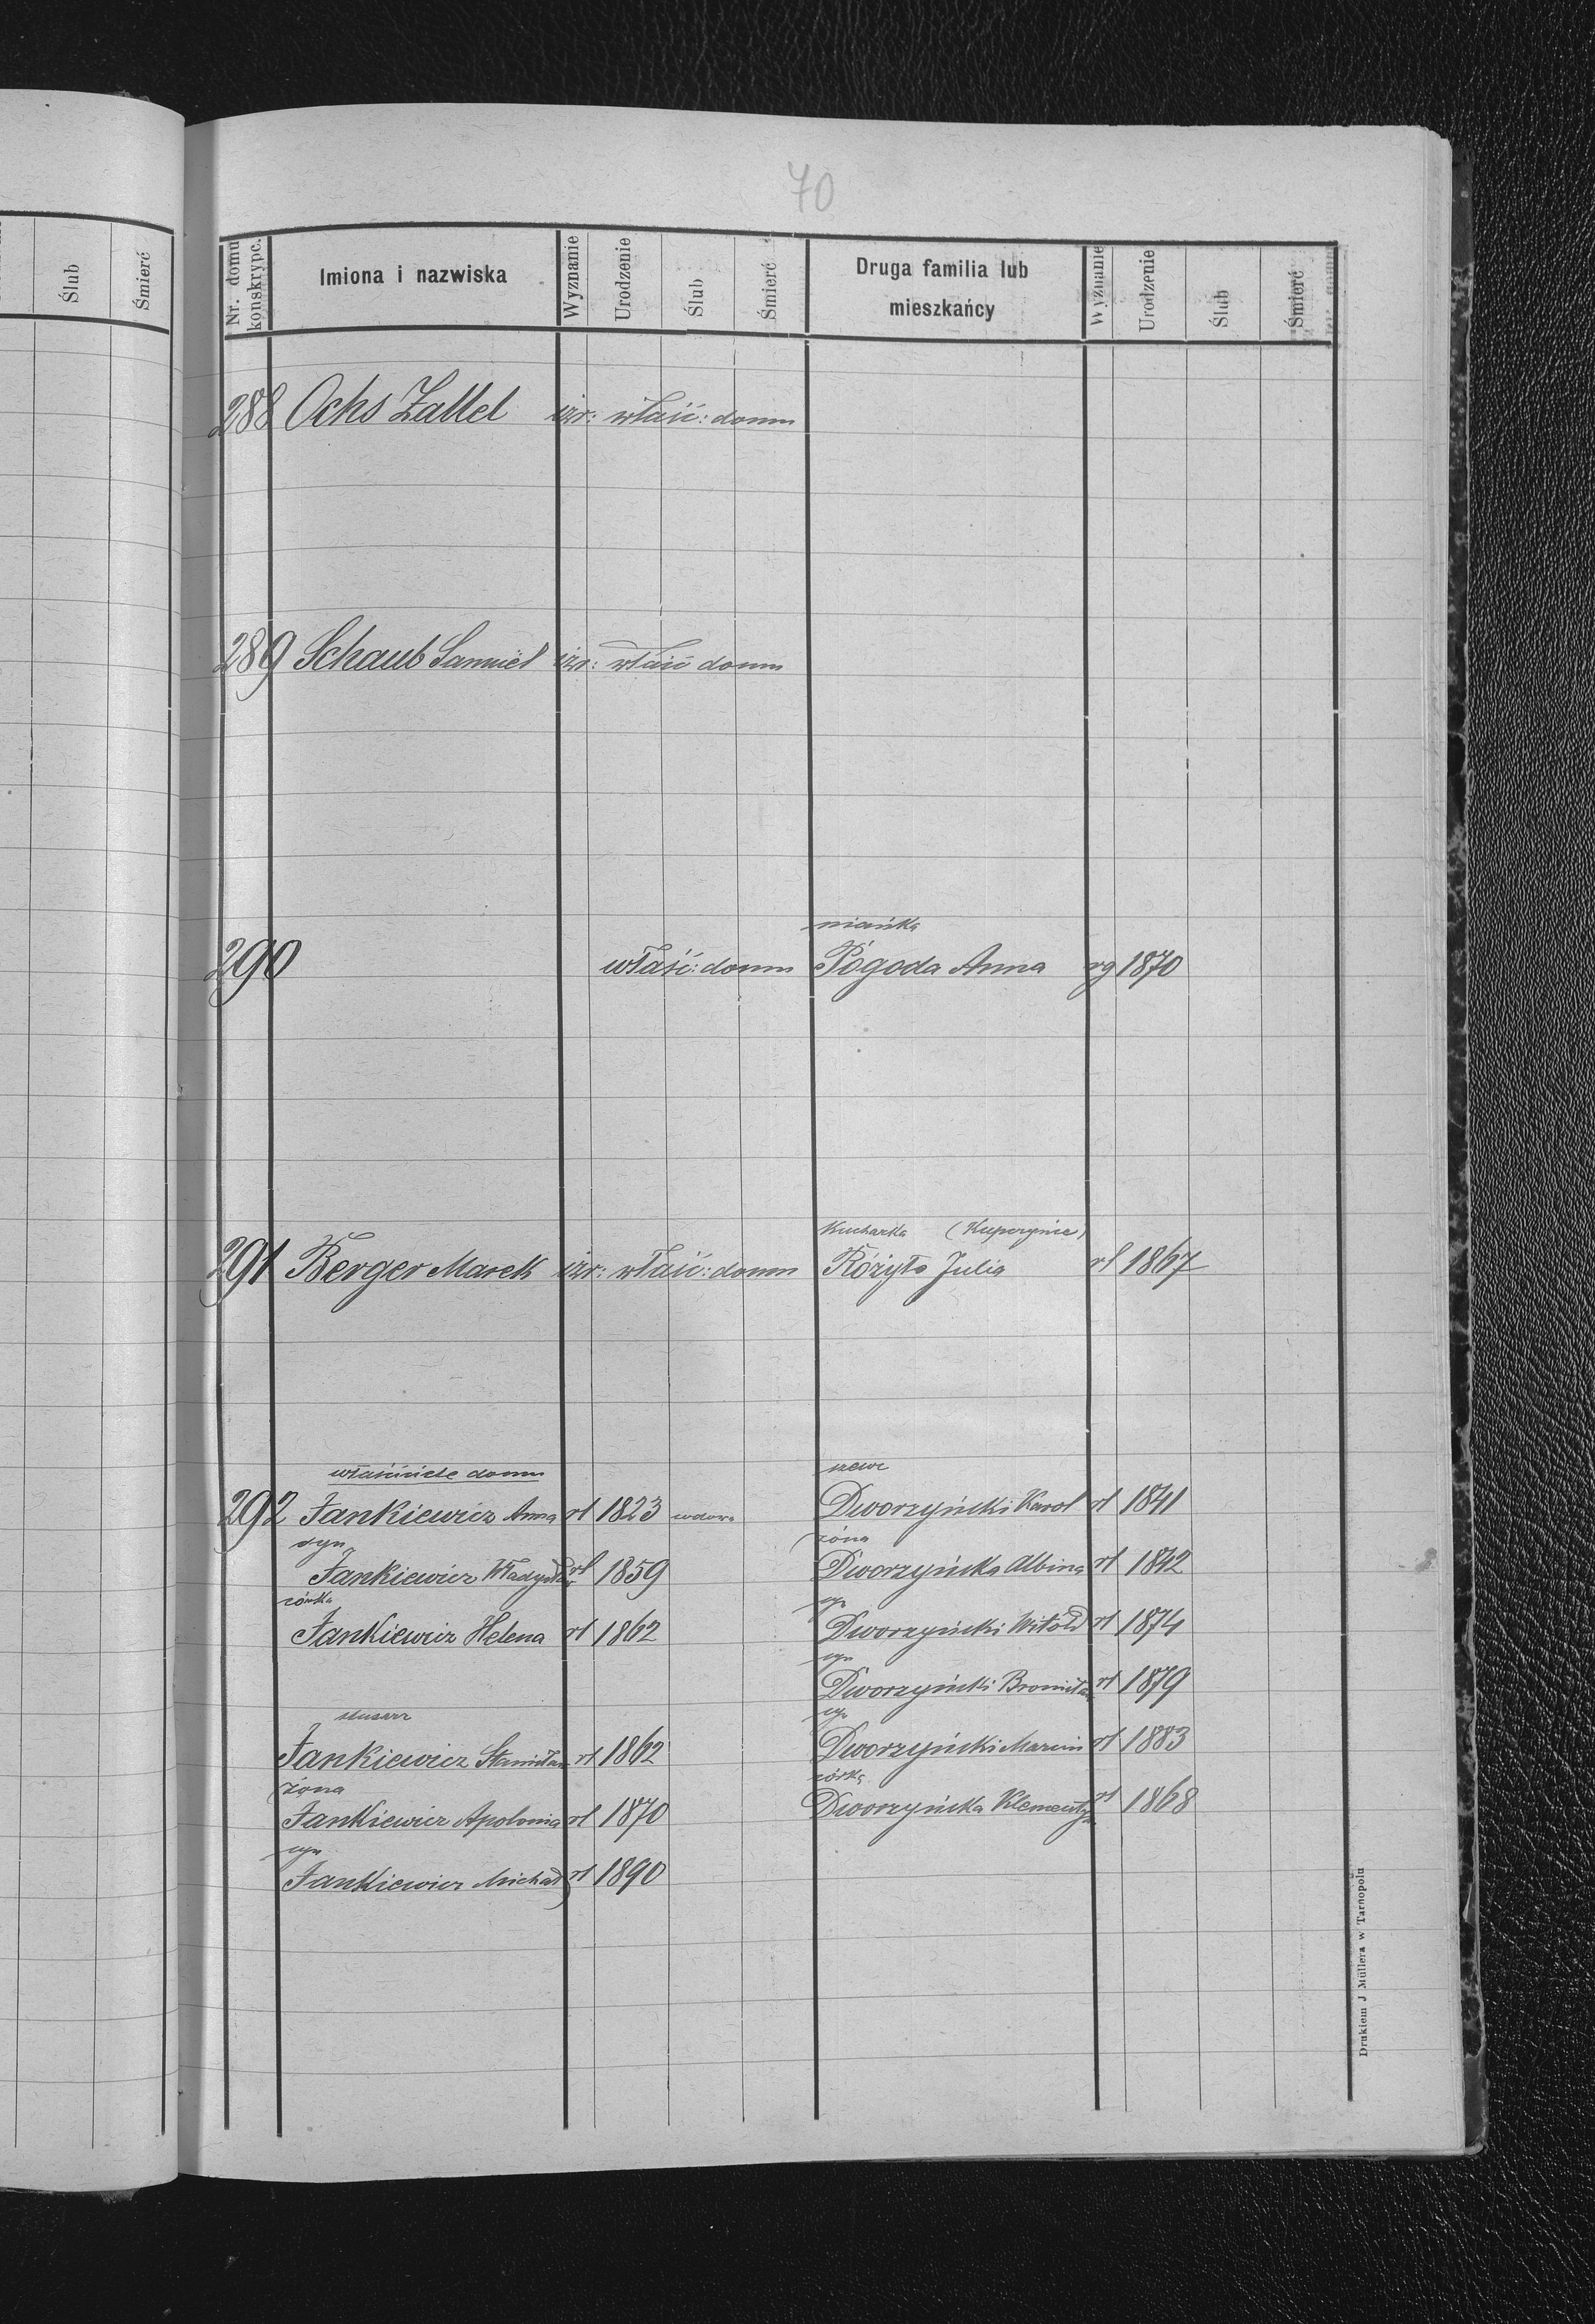 70
Nr. domu konskrypc.
Imiona i nazwiska
Wyznanie
Urodzenie
Ślub
Śmierć
Druga familia lub mieszkańcy
Wyznanie
Urodzenie
Ślub
Śmierć
Ślub
Śmierć
288 Ochs Zallel izr: właść: domu
289 Schaub Samuel izr: właść domu
niańka
290 właść: domu Pogoda Anna rg 1870
Kucharka
291 Berger Marek izr: właść: domu Różyło Julia rł 1867
właściciele domu szewc
292 Jankiewicz Anna rł 1823 wdowa Dworzyński Karol rł 1841
syn żona
Jankiewicz Władysław rł 1859 Dworzyńska Albina rł 1842
córka syn
Jankiewicz Helena rł 1862 Dworzyński Witold rł 1874
syn
Dworzyński Bronisław rł 1879
ślusarz syn
Jankiewicz Stanisław rł 1862 Dworzyński Marcin rł 1883
żona córka
Jankiewicz Apolonia rł 1870 Dworzyńska Klementyna rł 1868
syn
Jankiewicz Michał rł 1890
Drukiem J Müllera w Tarnopolu